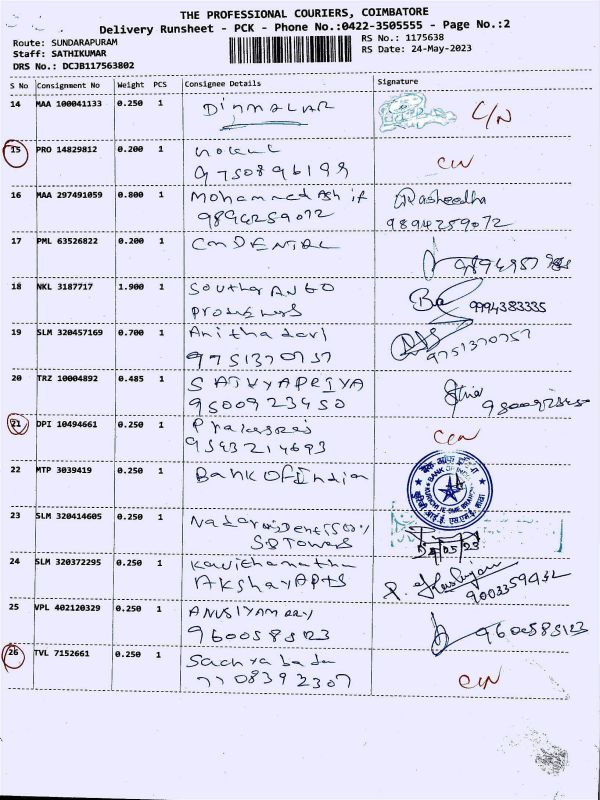 THE PROFESSIONAL COURIERS, COIMBATORE
Delivery Runsheet - PCK - Phone No.:0422-3505555 - Page No.:2
Route: SUNDARAPURAM
RS No.: 1175638
Staff: SATHIKUMAR
RS Date: 24-May-2023
DRS No.: DCJB117563802
S No Consignment No Weight PCS Consignee Details Signature
14 MAA 100041133 0.250 1 C/N
15 PRO 14829812 0.200 1
9750896199 C/N
16 MAA 297491059 0.800 1 Mohammed Ashif Rasheedha
9894259072 9894259072
17 PML 63526822 0.200 1
18 NKL 3187717 1.900 1 9994383335
19 SLM 320457169 0.700 1 Anitha devi
9751370757 9751370757
20 TRZ 10004892 0.485 1 SATHYAPRIYA
9500923450
21 DPI 10494661 0.250 1 C/N
9543214693
22 MTP 3039419 0.250 1 Bank Of India
BANK OF INDIA
23 SLM 320414605 0.250 1
SB Towers
24 SLM 320372295 0.250 1
Akshay Apts 9003359432
25 VPL 402120329 0.250 1
9600585123 9600585123
26 TVL 7152661 0.250 1
7708392307 C/N